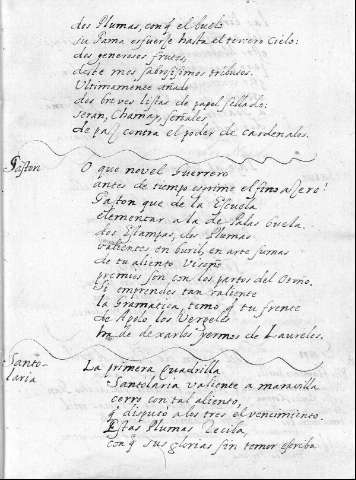 dos Plumas, con q̃ el buelo
su Fama esfuerse hasta el tercero Cielo:
dos generosos frutos,
deste mes sabrosissimos tributos.
Ultimamente añado
dos breves listas de papel sellado:
seran, Chamar, señales,
de paz contra el poder de Cardenales.
Gaston
O que novel Guerrero
antes de tiempo esgrime el fino azero!
Gaston que de la Escuela
elementar a la de Palas buela.
dos Estampas, dos Plumas
valientes en buril, en arte sumas
de tu aliento
premios son con los partos del Otoño.
Si emprendes tan valiente
la Gramatica, temo q̃ tu frente
de Apolo los Vergeles
ha de dexarlos yermos de Laureles.
Santo-
laria
La primera Quadrilla
Santolaria valiente a maravilla
cerro con tal aliento,
q̃ disputò a los tres el vencimiento.
Estas Plumas
con q̃ sus glorias sin temor escriba